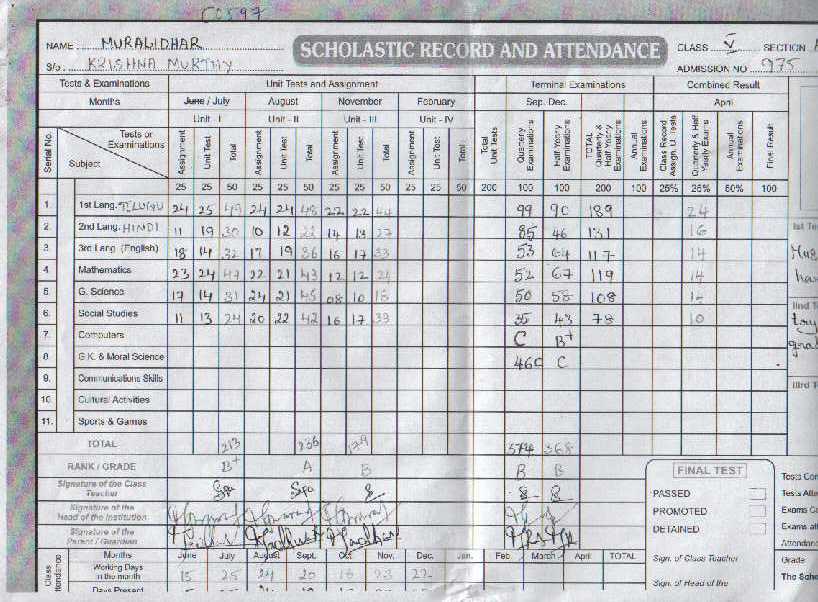 CC597
NAME MURALIDHAR SCHOLASTIC RECORD AND ATTENDANCE CLASS V SECTION
S/o. KRISHNA MURTHY ADMISSION NO 975
Tests & Examinations Unit Tests and Assignment Terminal Examinations Combined Result
Months June / July August November February Sep. Dec. April
Unit - I Unit - II Unit - III Unit - IV
Serial No. Tests or Examinations Subject Assignment Unit Test Total Assignment Unit Test Total Assignment Unit Test Total Assignment Unit Test Total Total Unit Tests Quarterly Examinations Half Yearly Examinations TOTAL Quarterly & Half Yearly Examinations Annual Examinations Class Record Assign. U. Tests Quarterly & Half Yearly Exams Annual Examinations Final Result
25 25 50 25 25 50 25 25 50 25 25 50 200 100 100 200 100 25% 25% 50% 100
1. 1st Lang. TELUGU 24 25 49 24 24 48 22 22 44 99 90 189 24
2. 2nd Lang. HINDI 11 19 30 10 12 22 14 13 27 85 46 131 16
3. 3rd Lang. (English) 18 14 32 17 19 36 16 17 33 53 64 117 14
4. Mathematics 23 24 47 22 21 43 12 12 24 52 67 119 14
5. G. Science 17 14 31 24 21 45 08 10 18 50 58 108 14
6. Social Studies 11 13 24 20 22 42 16 17 33 35 43 78 10
7. Computers C B+
8. G.K. & Moral Science 46C C
9. Communications Skills
10. Cultural Activities
11. Sports & Games
TOTAL 213 236 179 374 368
RANK / GRADE B+ A B B B
Signature of the Class Teacher
Signature of the Head of the Institution
Signature of the Parent / Guardian
FINAL TEST
PASSED
PROMOTED
DETAINED
Sign. of Class Teacher
Sign. of Head of the
Class Attendance Months June July August Sept. Oct. Nov. Dec. Jan. Feb. March April TOTAL
Working Days in the month 15 25 24 20 16 23 22
Days Present
Ist T
IInd T
try
IIIrd T
Tests Con
Tests Atte
Exams Co
Exams att
Attendance
Grade
The Scho